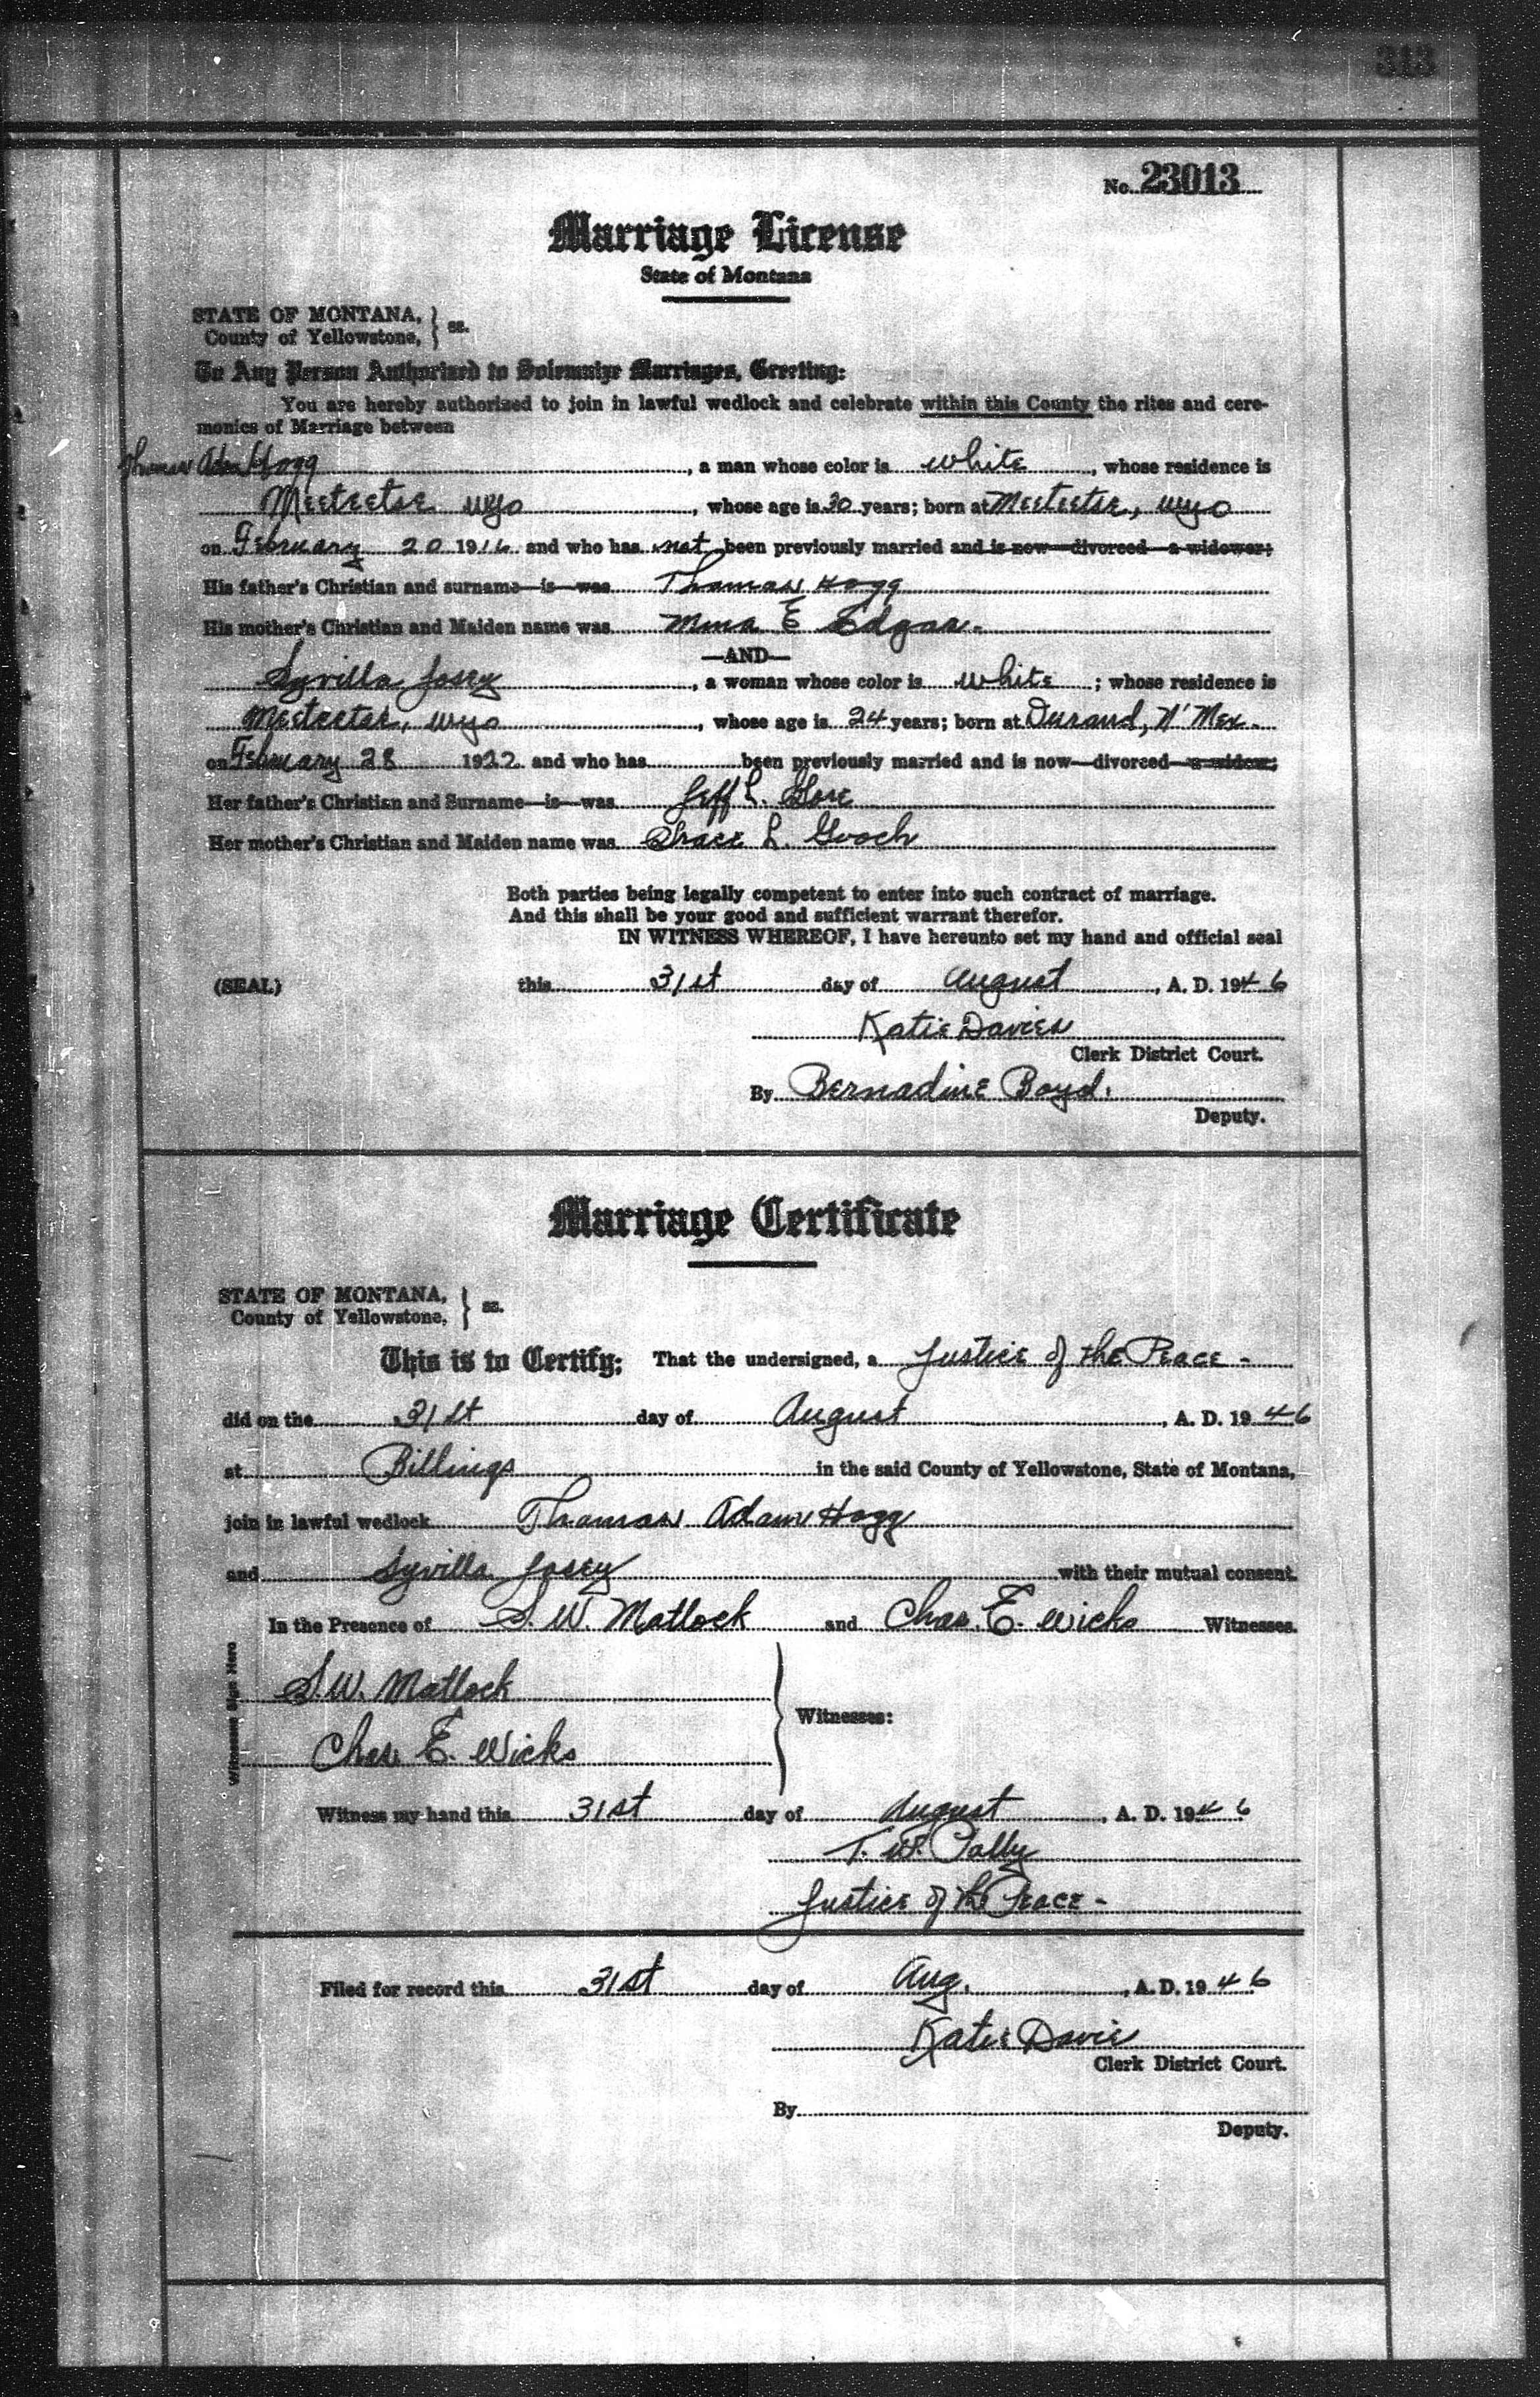 313
No. 23013
Marriage License
State of Montana
STATE OF MONTANA,
County of Yellowstone, } ss.
To Any Person Authorized to Solemnize Marriages, Greeting:
You are hereby authorized to join in lawful wedlock and celebrate within this County the rites and cere-
monies of Marriage between
Thomas Adam Hogg, a man whose color is white, whose residence is
Meeteetse Wyo, whose age is 30 years; born at Meeteetse, Wyo
on February 20 1916 and who has not been previously married and is now—divorced—a widower;
His father's Christian and surname—is—was Thomas Hogg
His mother's Christian and Maiden name was Mina E Edgar-
—AND—
Syvilla Josey, a woman whose color is white; whose residence is
Meeteetse, Wyo, whose age is 24 years; born at Durand, N' Mex.
on February 28 1922 and who has been previously married and is now—divorced—a widow;
Her father's Christian and Surname—is—was Jeff L. Gore
Her mother's Christian and Maiden name was Grace L. Gooch
Both parties being legally competent to enter into such contract of marriage.
And this shall be your good and sufficient warrant therefor.
IN WITNESS WHEREOF, I have hereunto set my hand and official seal
(SEAL) this 31st day of August, A. D. 1946
Katie Davies
Clerk District Court.
By Bernadine Boyd.
Deputy.
Marriage Certificate
STATE OF MONTANA,
County of Yellowstone, } ss.
This is to Certify: That the undersigned, a Justice of the Peace -
did on the 31st day of August, A. D. 1946
at Billings in the said County of Yellowstone, State of Montana,
join in lawful wedlock Thomas Adam Hogg
and Syvilla Josey with their mutual consent.
In the Presence of S. W. Matlock and Chas. E. Wicks Witnesses.
Witnesses Sign Here
S. W. Matlock
Witnesses:
Chas. E. Wicks
Witness my hand this 31st day of August, A. D. 1946
T. W.
Justice of the Peace -
Filed for record this 31st day of Aug., A. D. 1946
Katie Davies
Clerk District Court.
By
Deputy.